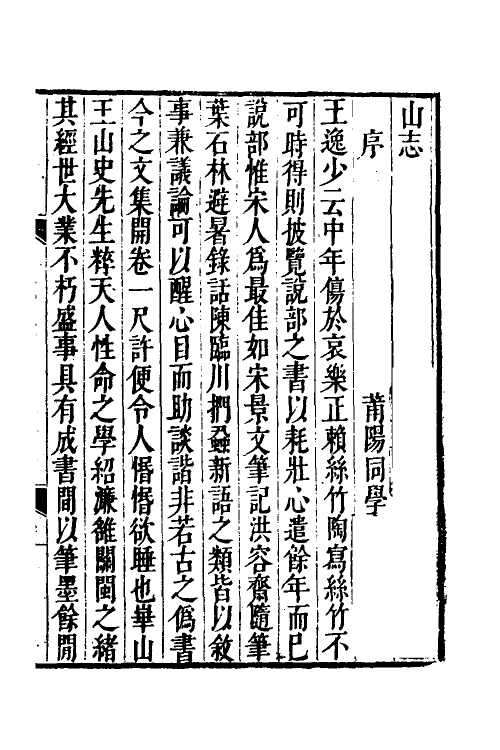 山志
序
莆陽同學
王逸少云中年傷於哀樂正賴絲竹陶寫絲竹不
可時得則披覽說部之書以耗壯心遣餘年而已
說部惟宋人爲最佳如宋景文筆記洪容齋隨筆
葉石林避暑錄話陳臨川捫蝨新語之類皆以敘
事兼議論可以醒心目而助談諧非若古之僞書
今之文集開卷一尺許便令人惛惛欲睡也華山
王山史先生粹天人性命之學紹濂雒關閩之緒
其經世大業不朽盛事具有成書閒以筆墨餘閒